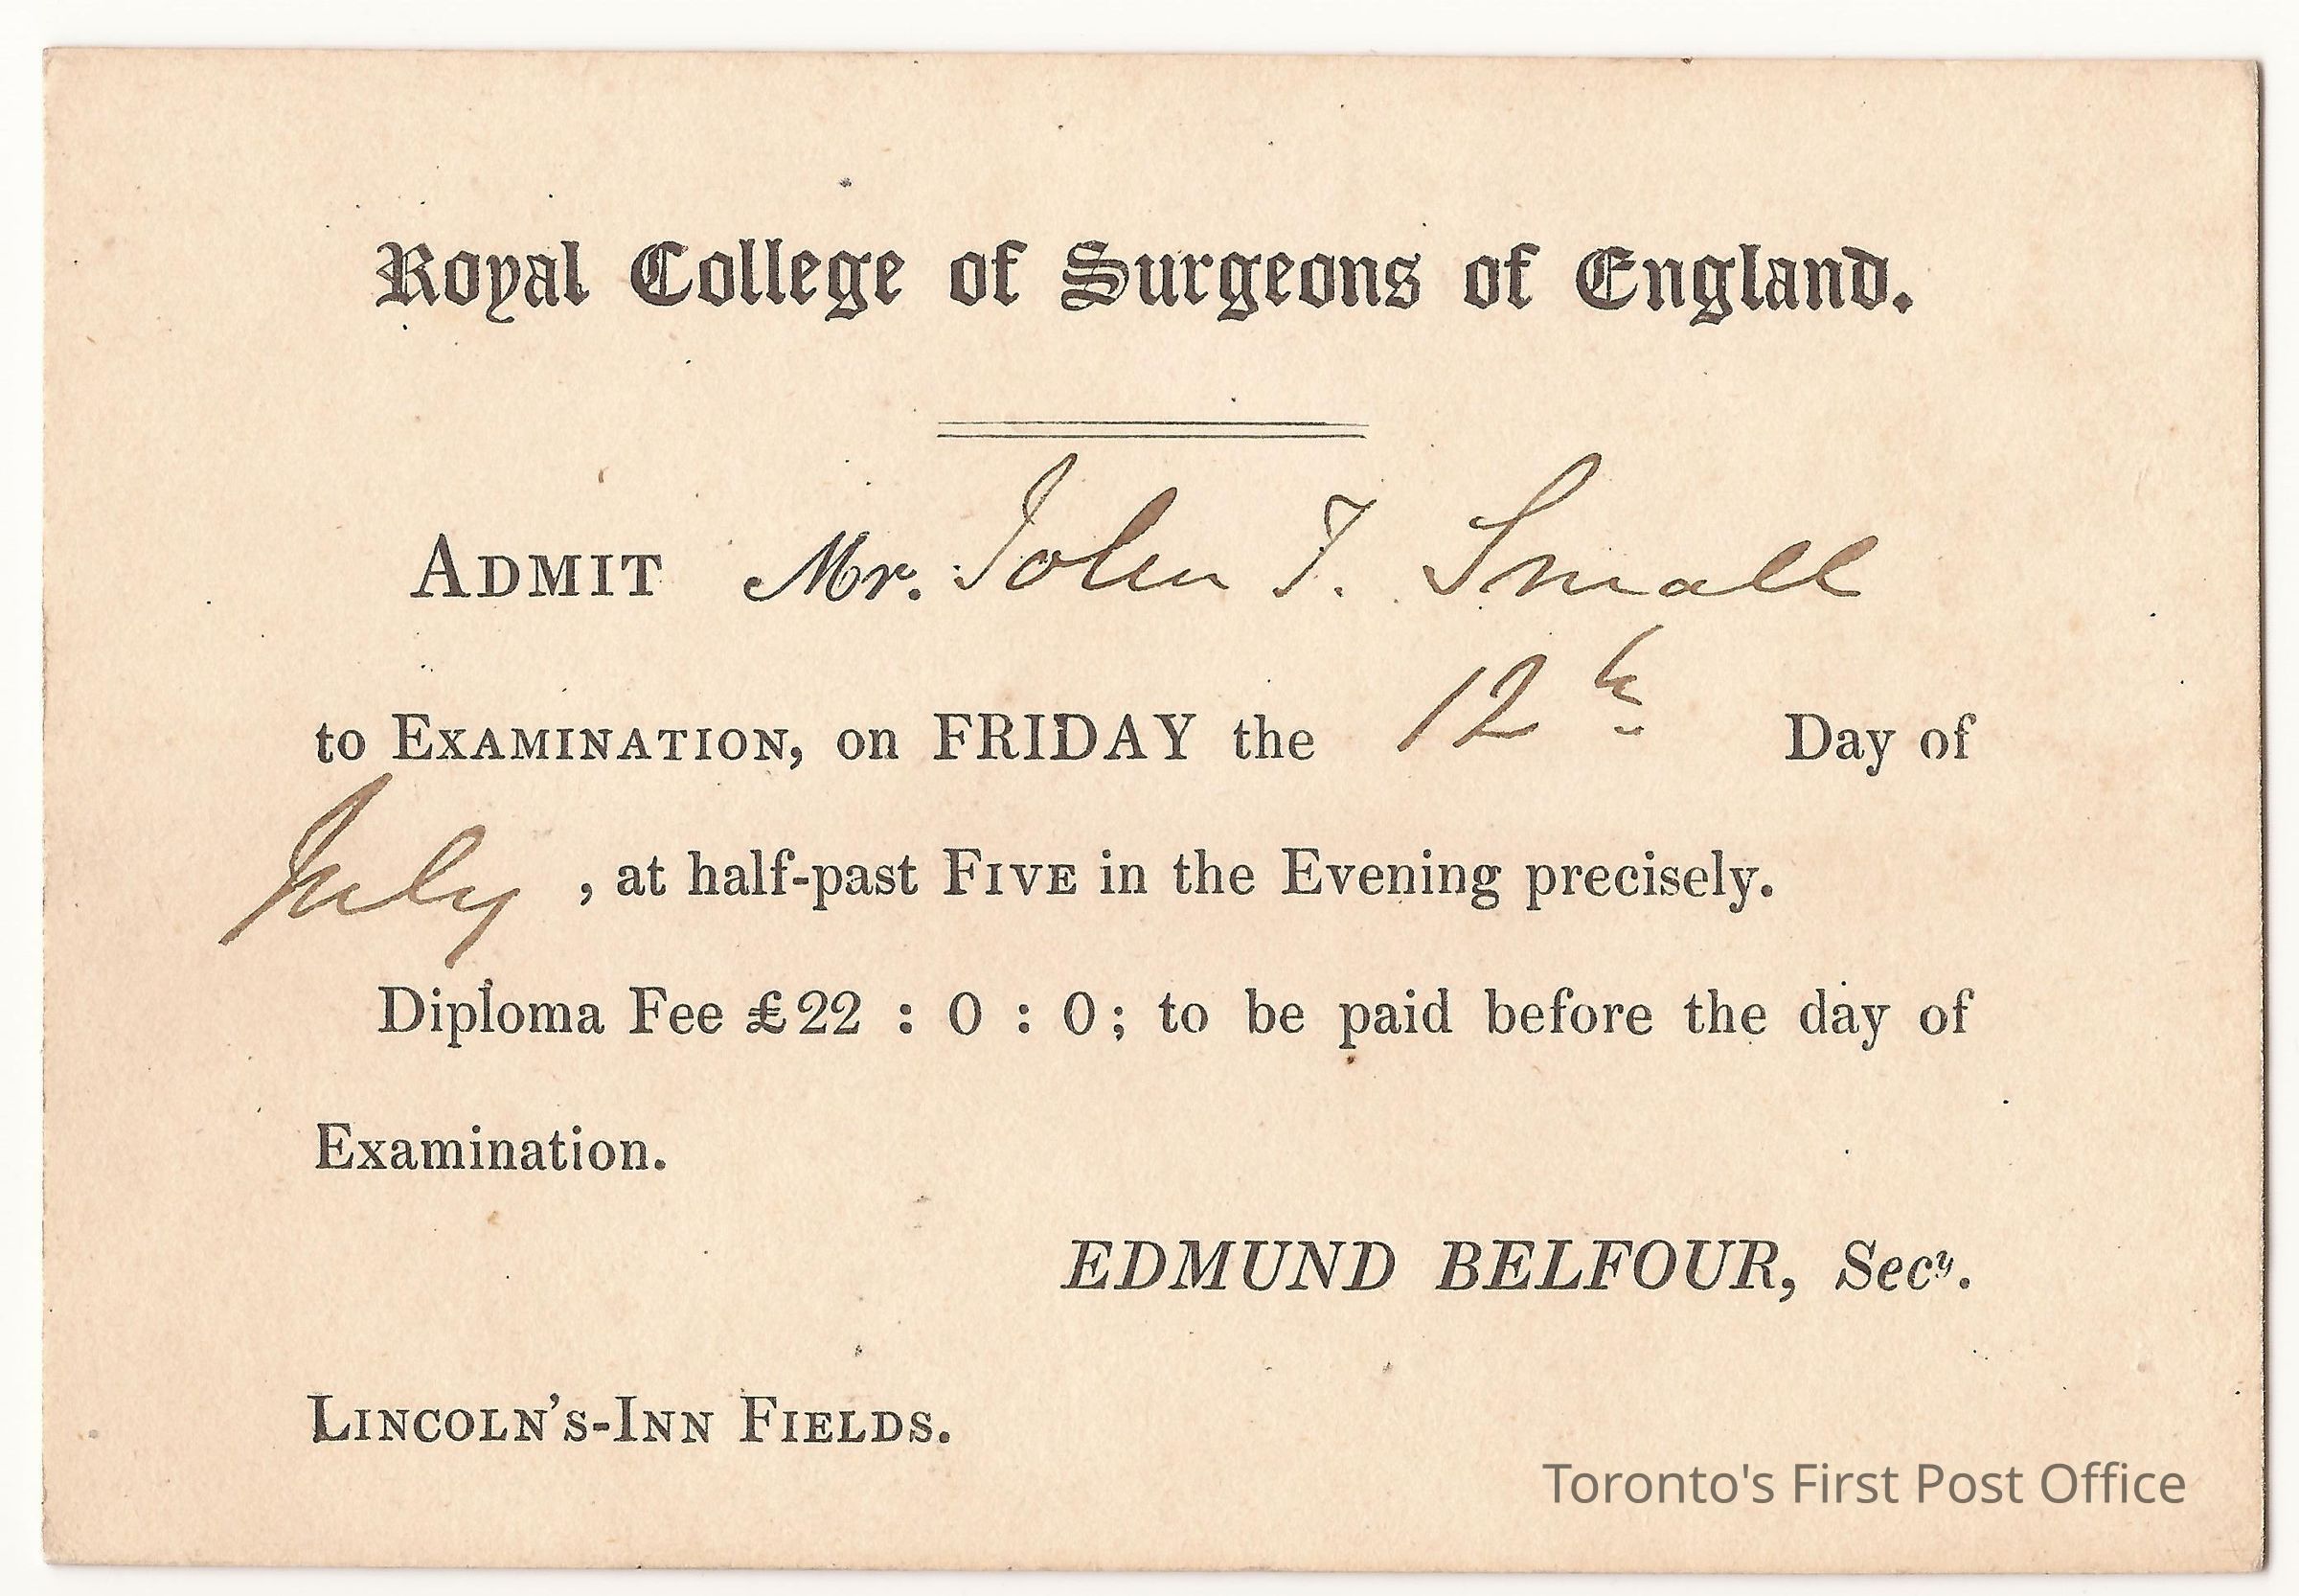 Royal College of Surgeons of England.
ADMIT Mr. John T. Small
to EXAMINATION, on FRIDAY the 12th Day of
July, at half-past FIVE in the Evening precisely.
Diploma Fee £22 : 0 : 0; to be paid before the day of
Examination.
EDMUND BELFOUR, Secy.
LINCOLN'S-INN FIELDS.
Toronto's First Post Office